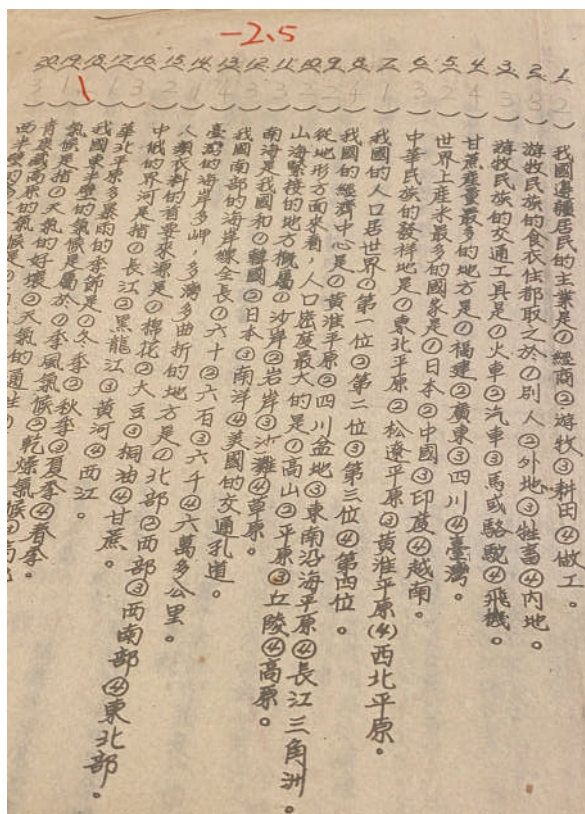 -2.5
1.(2)我國邊疆居民的主業是①經商②游牧③耕田④做工。
2.(3)游牧民族的食衣住都取之於①別人②外地③牲畜④內地。
3.(3)游牧民族的交通工具是①火車②汽車③馬或駱駝④飛機。
4.(4)甘蔗產量最多的地方是①福建②廣東③四川④臺灣。
5.(2)世界上產米最多的國家是①日本②中國③印度④越南。
6.(3)中華民族的發祥地是①東北平原②松遼平原③黃淮平原(4)西北平原。
7.(1)我國的人口居世界①第一位②第二位③第三位④第四位。
8.(4)我國的經濟中心是①黃淮平原②四川盆地③東南沿海平原④長江三角洲。
9.(2)從地形方面來看,人口密度最大的是①高山②平原③丘陵④高原。
10.(2)山海緊接的地方概屬①沙岸②岩岸③沙灘④草原。
11.(3)南海是我國和①韓國②日本③南洋④美國的交通孔道。
12.(3)我國南部的海岸線全長①六十②六百③六千④六萬多公里。
13.(4)臺灣的海岸多岬,多灣多曲折的地方是①北部②西部③西南部④東北部。
14.(1)人類衣料的首要來源是①棉花②大豆③桐油④甘蔗。
15.(2)中俄的界河是指①長江②黑龍江③黃河④西江。
16.(3)華北平原多暴雨的季節是①冬季②秋季③夏季④春季。
17.(1)我國東半壁的氣候是屬於①季風氣候②乾燥氣候
18.(1)氣候是指①天氣的好壞②天氣的通
19.(1)青康藏高原的氣候是
20.(3)西半壁的